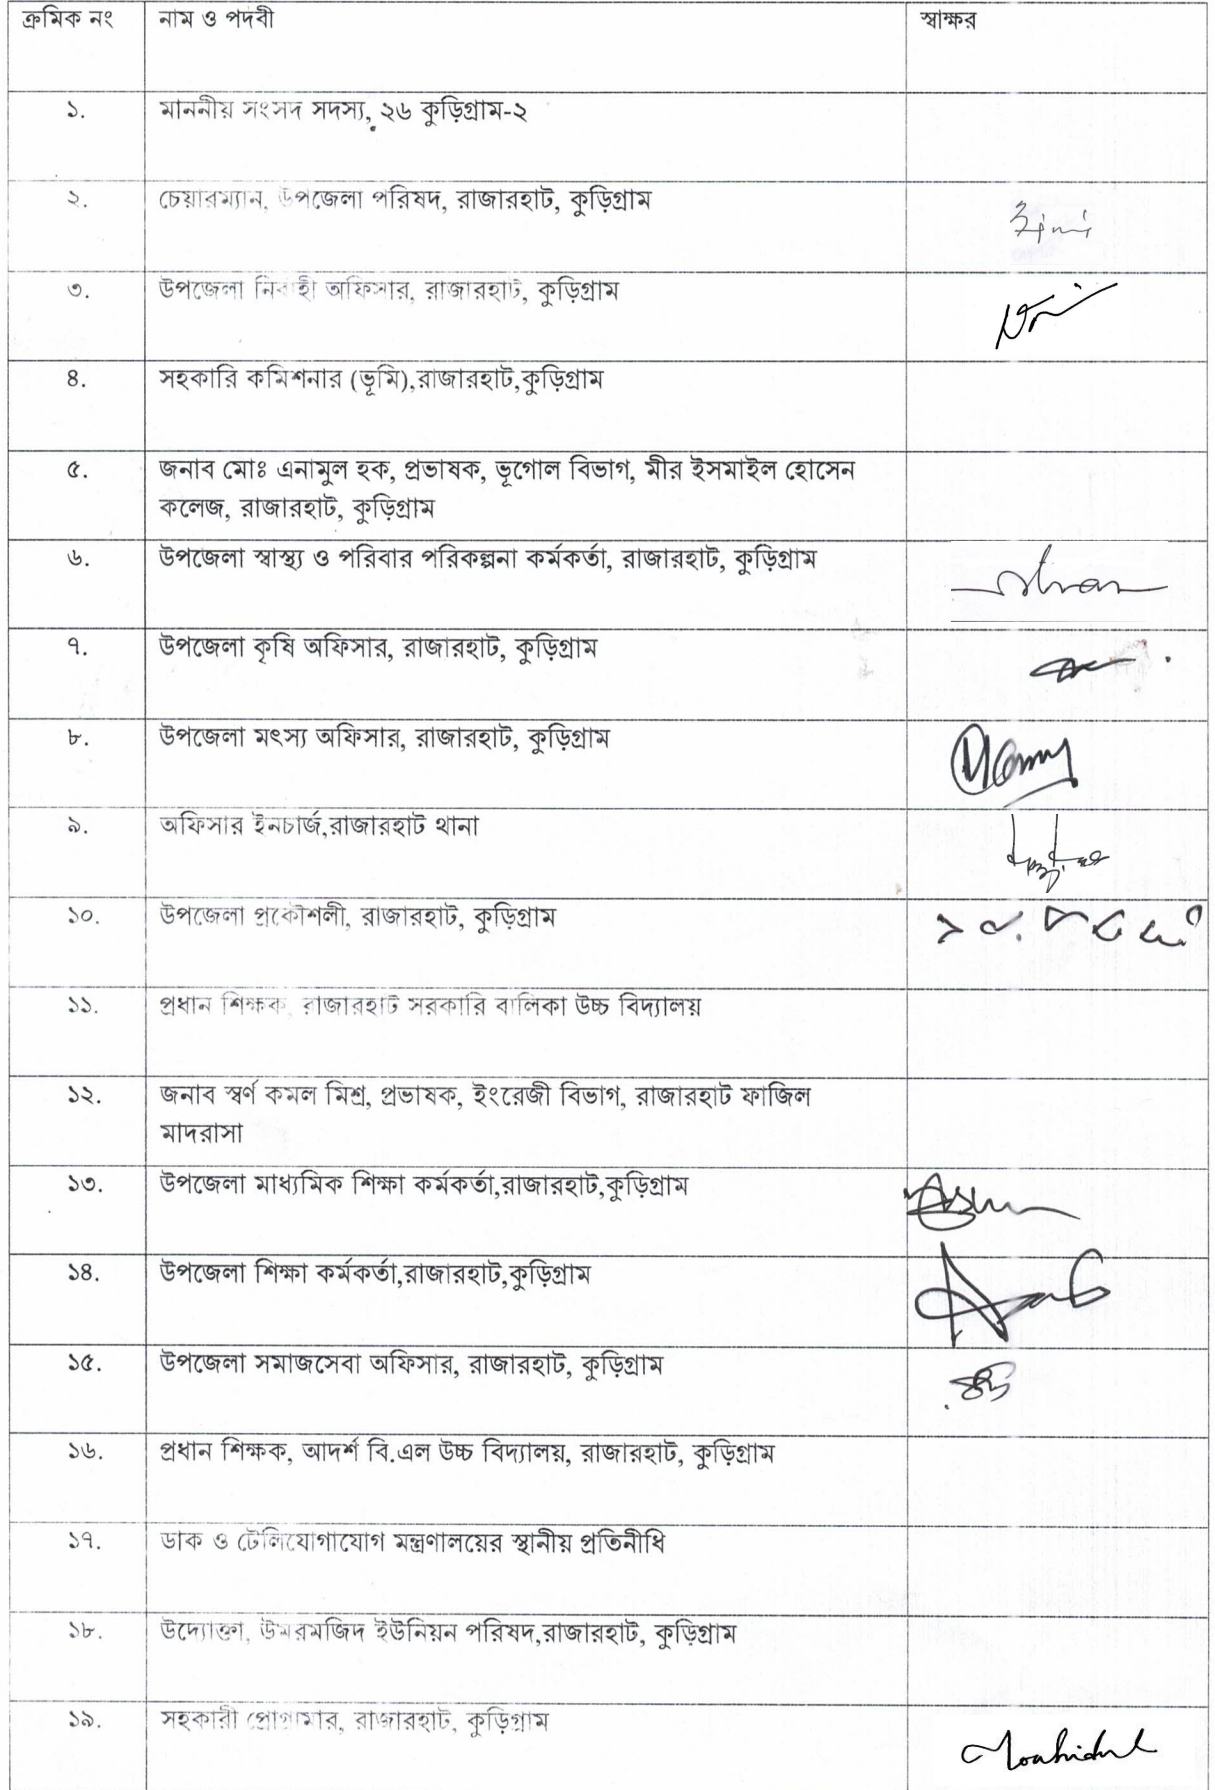 ক্রমিক নং নাম ও পদবী স্বাক্ষর
১. মাননীয় সংসদ সদস্য, ২৬ কুড়িগ্রাম-২
২. চেয়ারম্যান, উপজেলা পরিষদ, রাজারহাট, কুড়িগ্রাম
৩. উপজেলা নির্বাহী অফিসার, রাজারহাট, কুড়িগ্রাম
৪. সহকারি কমিশনার (ভূমি),রাজারহাট,কুড়িগ্রাম
৫. জনাব মোঃ এনামুল হক, প্রভাষক, ভূগোল বিভাগ, মীর ইসমাইল হোসেন
কলেজ, রাজারহাট, কুড়িগ্রাম
৬. উপজেলা স্বাস্থ্য ও পরিবার পরিকল্পনা কর্মকর্তা, রাজারহাট, কুড়িগ্রাম
৭. উপজেলা কৃষি অফিসার, রাজারহাট, কুড়িগ্রাম
৮. উপজেলা মৎস্য অফিসার, রাজারহাট, কুড়িগ্রাম
৯. অফিসার ইনচার্জ,রাজারহাট থানা
১০. উপজেলা প্রকৌশলী, রাজারহাট, কুড়িগ্রাম
১১. প্রধান শিক্ষক, রাজারহাট সরকারি বালিকা উচ্চ বিদ্যালয়
১২. জনাব স্বর্ণ কমল মিশ্র, প্রভাষক, ইংরেজী বিভাগ, রাজারহাট ফাজিল
মাদরাসা
১৩. উপজেলা মাধ্যমিক শিক্ষা কর্মকর্তা,রাজারহাট,কুড়িগ্রাম
১৪. উপজেলা শিক্ষা কর্মকর্তা,রাজারহাট,কুড়িগ্রাম
১৫. উপজেলা সমাজসেবা অফিসার, রাজারহাট, কুড়িগ্রাম
১৬. প্রধান শিক্ষক, আদর্শ বি.এল উচ্চ বিদ্যালয়, রাজারহাট, কুড়িগ্রাম
১৭. ডাক ও টেলিযোগাযোগ মন্ত্রণালয়ের স্থানীয় প্রতিনীধি
১৮. উদ্যোক্তা, উমরমজিদ ইউনিয়ন পরিষদ,রাজারহাট, কুড়িগ্রাম
১৯. সহকারী প্রোগ্রামার, রাজারহাট, কুড়িগ্রাম